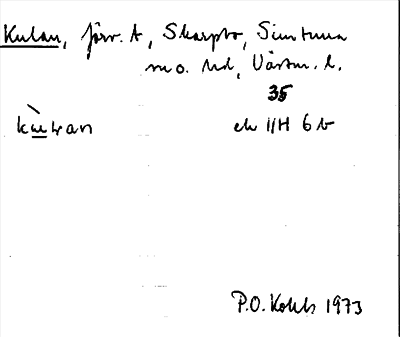 Kulan, förv. t, Skarpbo, Simtuna
sn o. hd, Västm. l.
35
kùlan
ek 11H 6 b
P.O. Kolsb 1973